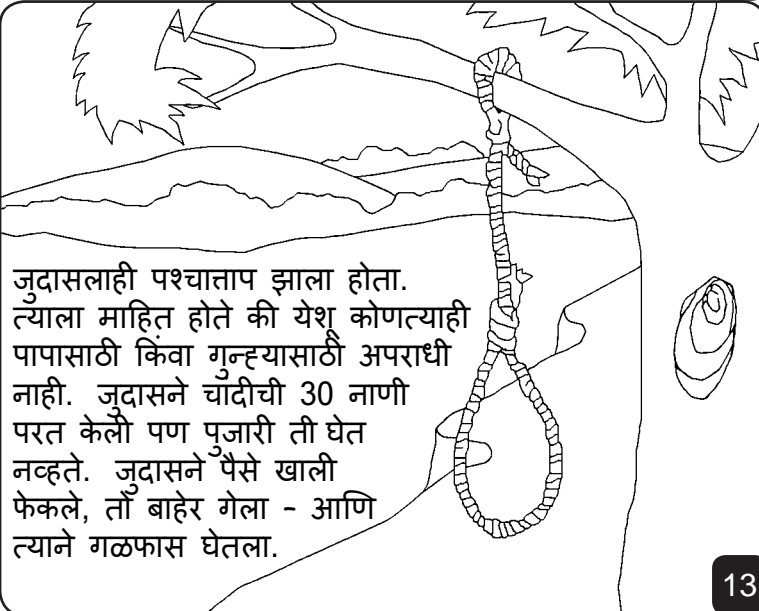 जुदासलाही पश्चात्ताप झाला होता.
त्याला माहित होते की येशू कोणत्याही
पापासाठी किंवा गुन्ह्यासाठी अपराधी
नाही. जुदासने चांदीची 30 नाणी
परत केली पण पुजारी ती घेत
नव्हते. जुदासने पैसे खाली
फेकले, तो बाहेर गेला - आणि
त्याने गळफास घेतला.
13